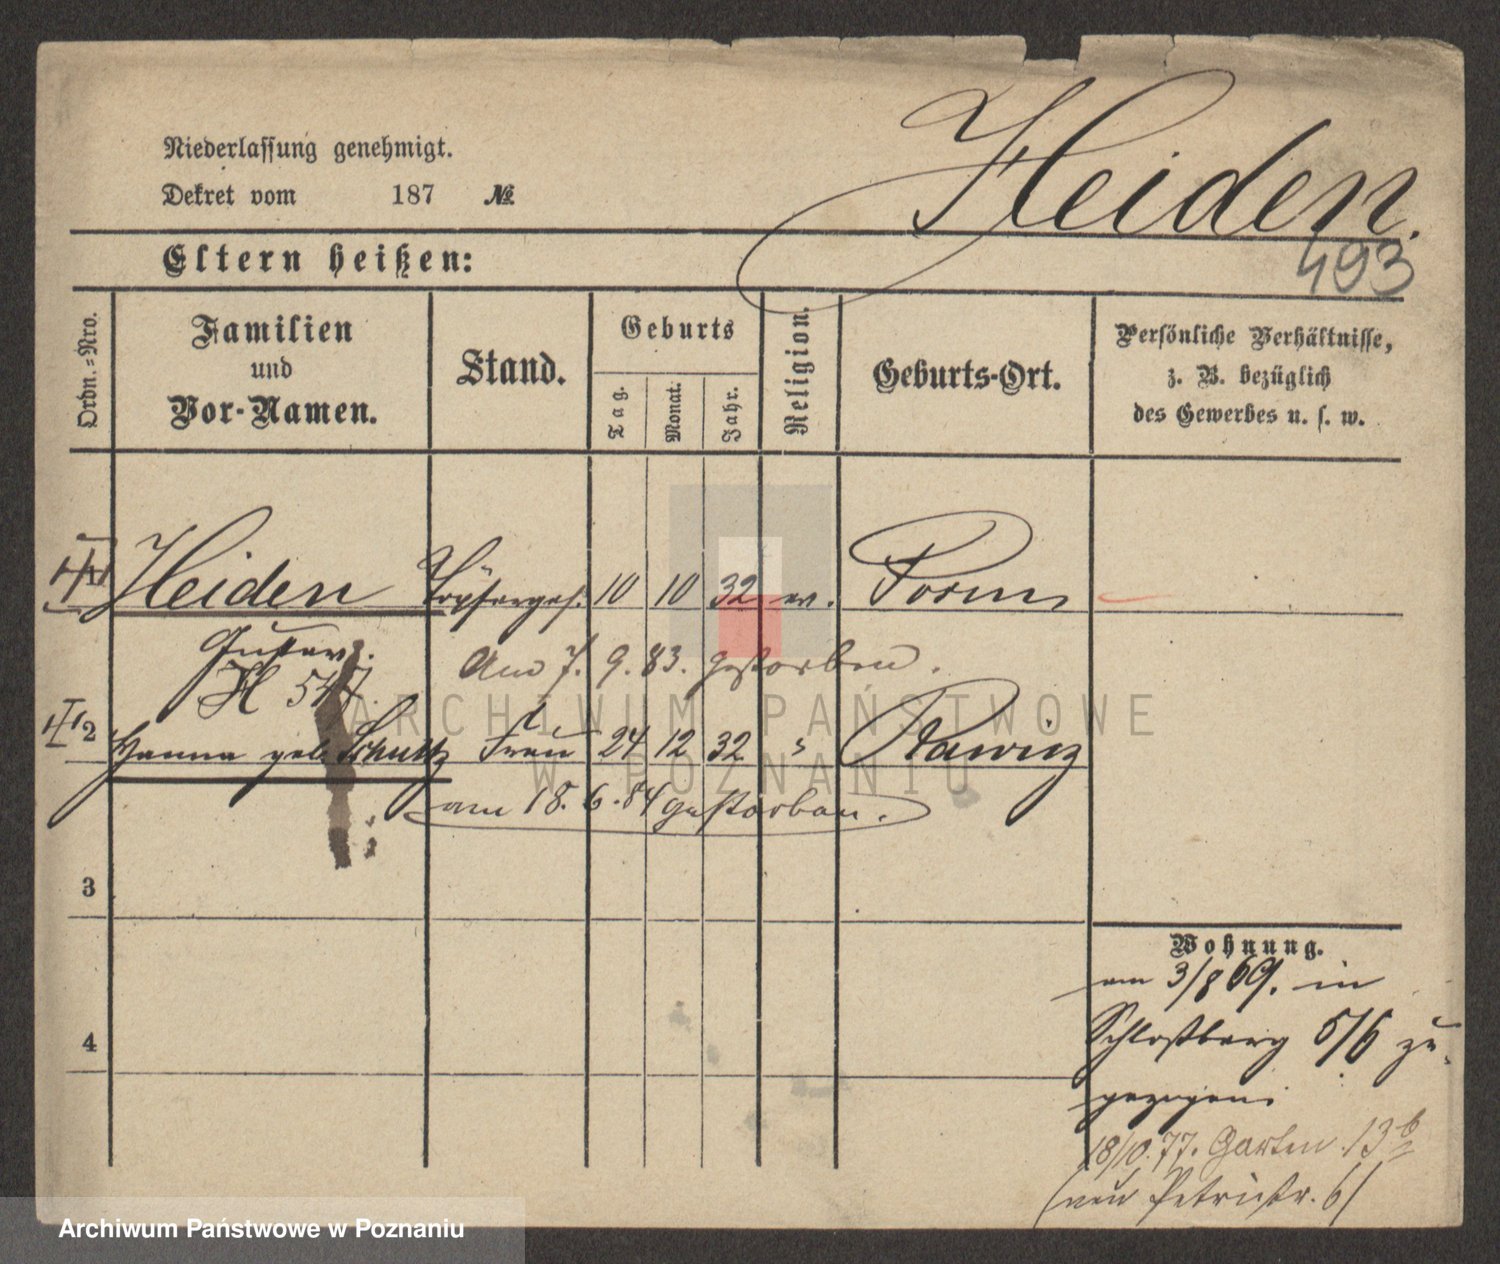 Heiden.
Niederlassung genehmigt.
Dekret vom 187 №
493
Eltern heißen:
Ordn.=Nro. Familien und Vor-Namen. Stand. Geburts Tag. Monat. Jahr. Religion. Geburts-Ort. Persönliche Verhältnisse, z. B. bezüglich des Gewerbes u. s. w.
Heiden Töpferges. 10 10 32 ev. Posen
Gustav.
Am 7. 9. 83. gestorben.
H 547
2 Hanna geb. Schultz Frau 24 12 32 Rawicz
am 18. 6. 84 gestorben.
3
4
Wohnung.
am 3/8 69. in
Schloßberg 5/6 zu-
gezogen.
18/10. 77. Garten 13 b
(neu Petristr. 6)
ARCHIWUM PAŃSTWOWE
W POZNANIU
Archiwum Państwowe w Poznaniu